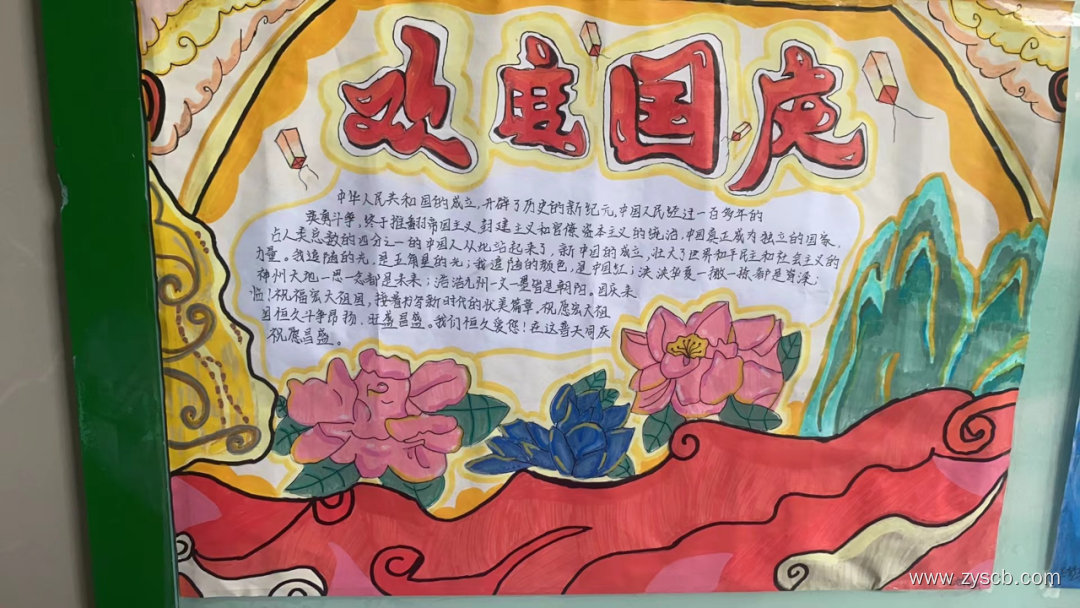 欢度国庆
中华人民共和国的成立，开辟了历史的新纪元，中国人民经过一百多年的
英勇斗争，终于推翻了帝国主义、封建主义和官僚资本主义的统治，中国真正成为独立的国家，
占人类总数的四分之一的中国人从此站起来了，新中国的成立，壮大了世界和平民主和社会主义的
力量。我追随的光，是五角星的光；我追随的颜色，是中国红；泱泱华夏一撇一捺都是
神州大地一思一念都是未来；浩浩九州一文一墨皆是朝阳。国庆来
临！祝福宏大祖国，接着抒写新时代的状美篇章，祝愿宏大祖
国恒久斗争昂扬，旺盛昌盛。我们恒久爱您！在这普天同庆
祝愿昌盛。
www.zyscb.com